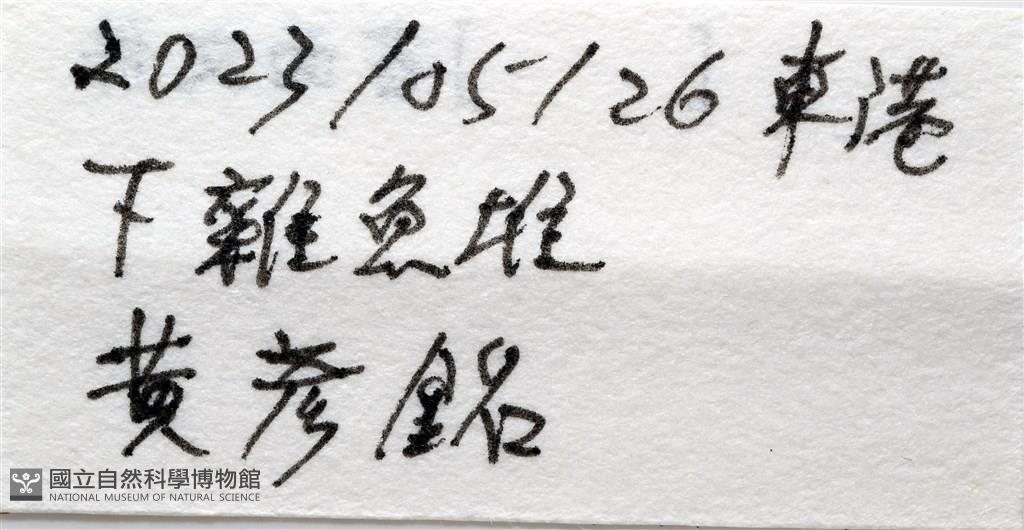 2023/05/26 東港
下雜魚堆
黃彥銘
國立自然科學博物館
NATIONAL MUSEUM OF NATURAL SCIENCE